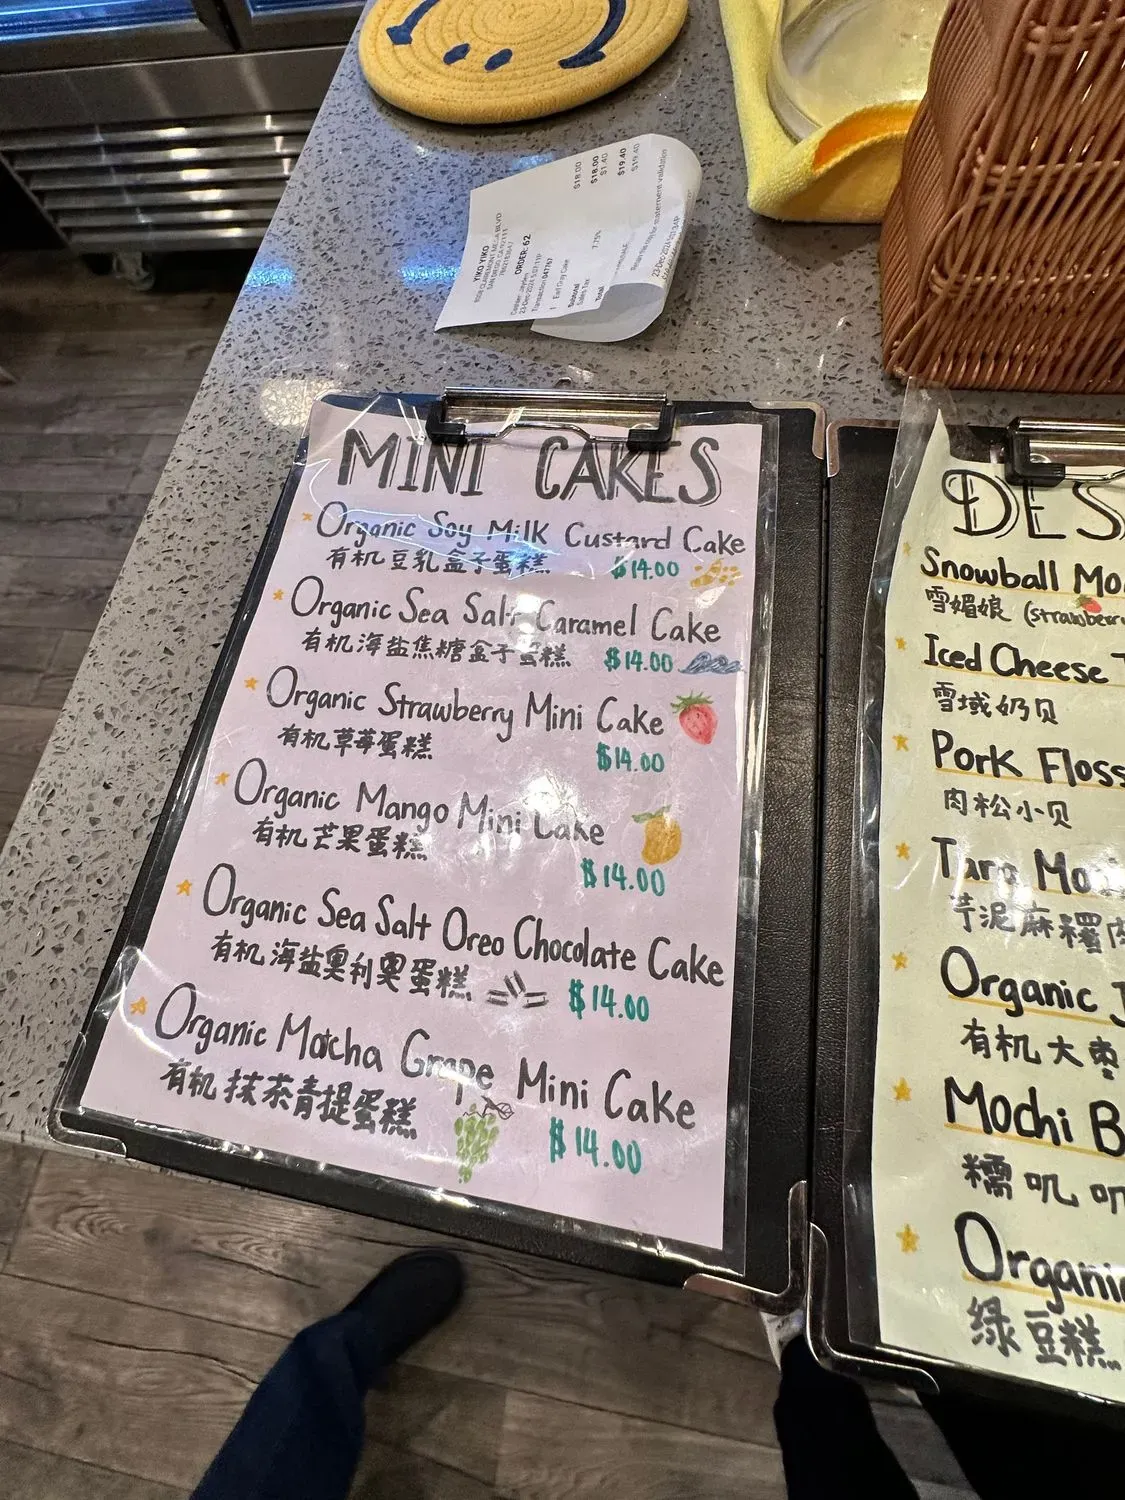 YIKO YIKO
SAN DIEGO, CA 92111
ORDER: 62
1 Earl Gray Cake
$18.00
Subtotal
$18.00
Sales Tax
7.75%
$1.40
Total
$19.40
$19.40
MINI CAKES
Organic Soy Milk Custard Cake
有机豆乳盒子蛋糕 $14.00
Organic Sea Salt Caramel Cake
有机海盐焦糖盒子蛋糕 $14.00
Organic Strawberry Mini Cake
有机草莓蛋糕
$14.00
Organic Mango Mini Cake
有机芒果蛋糕
$14.00
Organic Sea Salt Oreo Chocolate Cake
有机海盐奥利奥蛋糕 $14.00
Organic Matcha Grape Mini Cake
有机抹茶青提蛋糕 $14.00
DES
Snowball Mo
雪媚娘 (Strawberr
Iced Cheese
雪域奶贝
Pork Floss
肉松小贝
Taro Mo
芋泥麻糬肉
Organic J
有机大枣
Mochi B
糯叽叽
Organi
绿豆糕